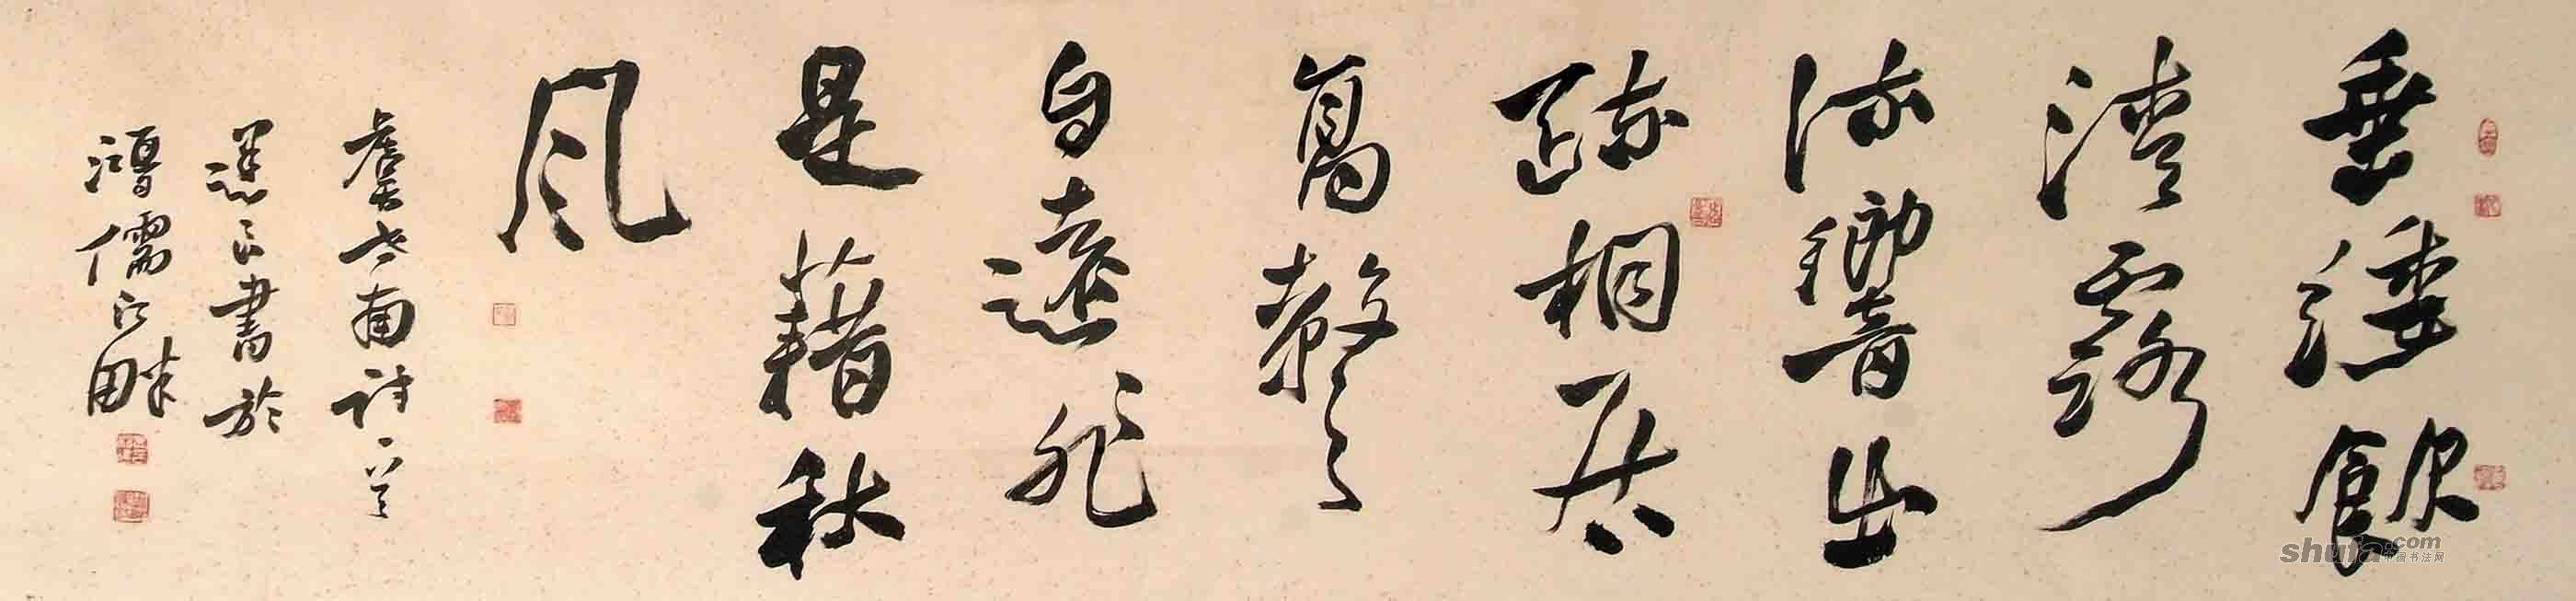 垂緌飲
清露
流響出
疏桐居
高聲
自遠非
是藉秋
風
虞世南詩一首
良書於
鴻儒江畔
shufa.com
中国书法网